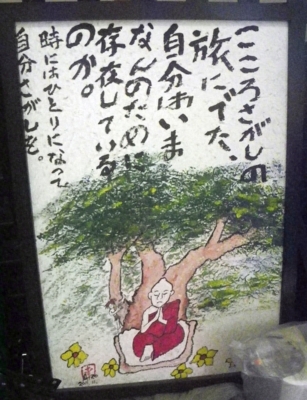 こころさがしの
旅にでた、
自分はいま
なんのために
存在している
のか。
時にはひとりになって
自分さがしを。